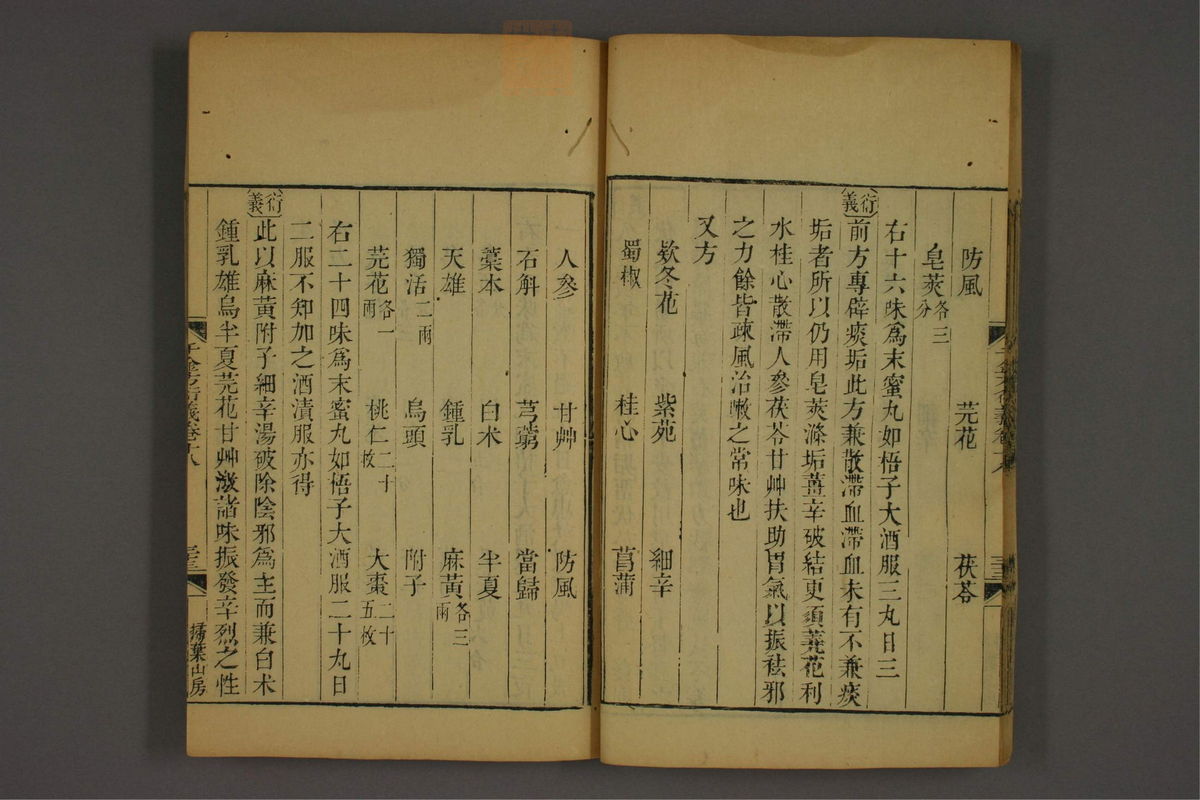 防風 芫花 茯苓
皂莢各三分
右十六味爲末蜜丸如梧子大酒服三丸日三
衍義
前方專辟痰垢此方兼散滯血滯血未有不兼痰
垢者所以仍用皂莢滌垢薑辛破結更須蕘花利
水桂心散滯人參茯苓甘艸扶助胃氣以振祛邪
之力餘皆疎風治嗽之常味也
又方
欵冬花 紫苑 細辛
蜀椒 桂心 菖蒲
人參 甘艸 防風
石斛 芎藭 當歸
藁本 白术 半夏
天雄 鍾乳 麻黃各三兩
獨活二兩 烏頭 附子
芫花各一兩 桃仁二十枚 大棗二十五枚
右二十四味爲末蜜丸如梧子大酒服二十九日
二服不知加之酒漬服亦得
衍義
此以麻黃附子細辛湯破除陰邪爲主而兼白术
鍾乳雄烏半夏芫花甘艸激諸味振發辛烈之性
千金方衍義卷十八
掃葉山房